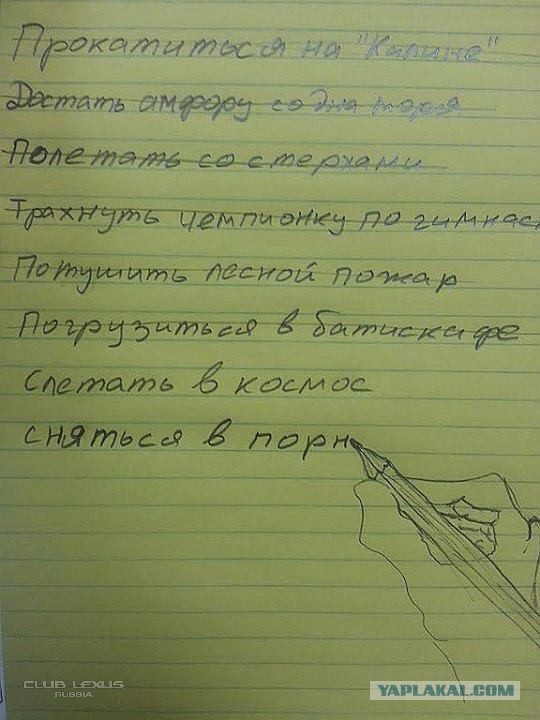 Прокатиться на "Калине"
Достать амфору со дна моря
Полетать со стерхами
Трахнуть чемпионку по гимнаст
Потушить лесной пожар
Погрузиться в батискафе
Слетать в космос
сняться в порн
CLUB LEXUS
RUSSIA
YAPLAKAL.COM